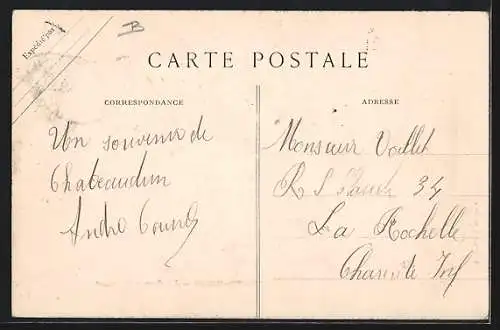 Expédié par
B
CARTE POSTALE
CORRESPONDANCE
Un souvenir de
Chateaudun
André
ADRESSE
Monsieur Vaillet
R S 34
La Rochelle
Charente Inf